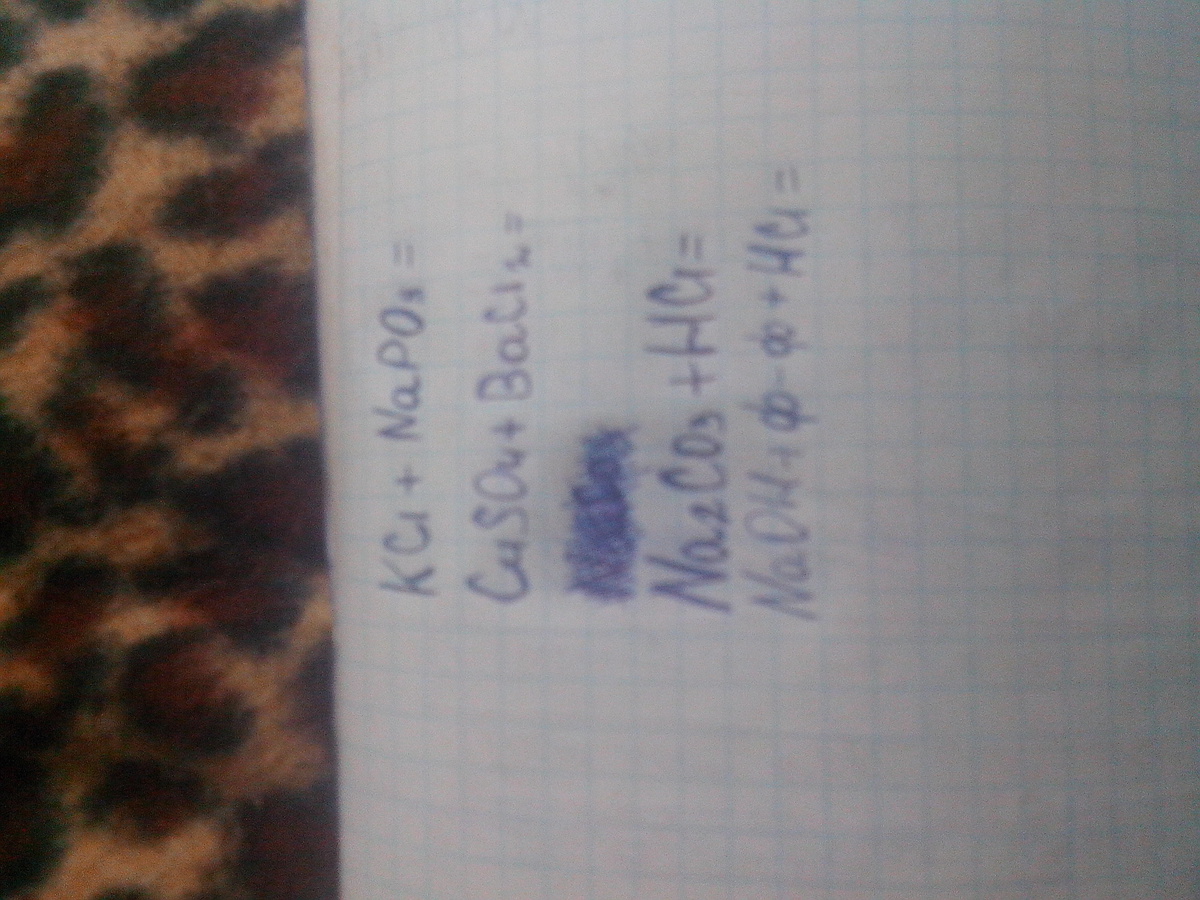 KCl + NaPO₃ =
CuSO₄ + BaCl₂ =
Na₂CO₃ + HCl =
NaOH + ф-ф + HCl =